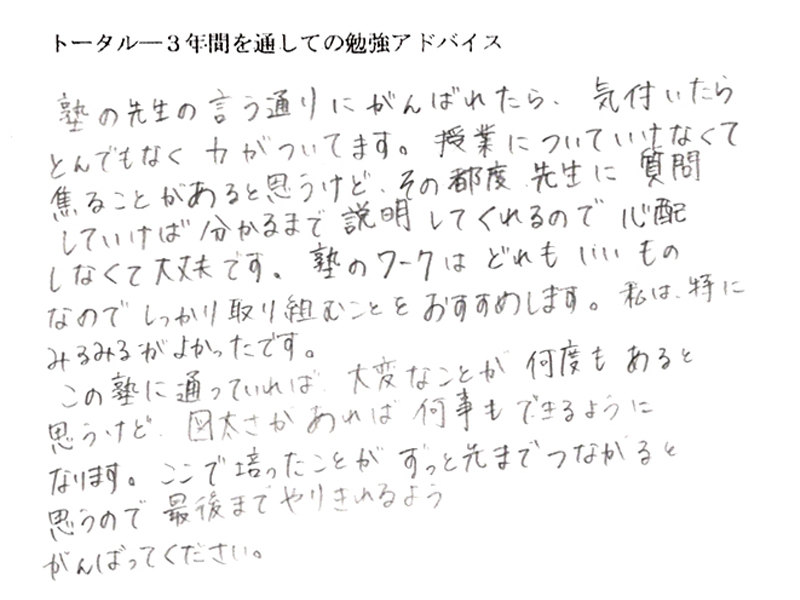 トータル―3年間を通しての勉強アドバイス
塾の先生の言う通りにがんばれたら、気付いたら
とんでもなく力がついてます。授業についていけなくて
焦ることがあると思うけど、その都度、先生に質問
していけば分かるまで説明してくれるので心配
しなくて大丈夫です。塾のワークはどれもいいもの
なのでしっかり取り組むことをおすすめします。私は、特に
みるみるがよかったです。
この塾に通っていれば、大変なことが何度もあると
思うけど、図太さがあれば何事もできるように
なります。ここで培ったことがずっと先までつながると
思うので最後までやりきれるよう
がんばってください。